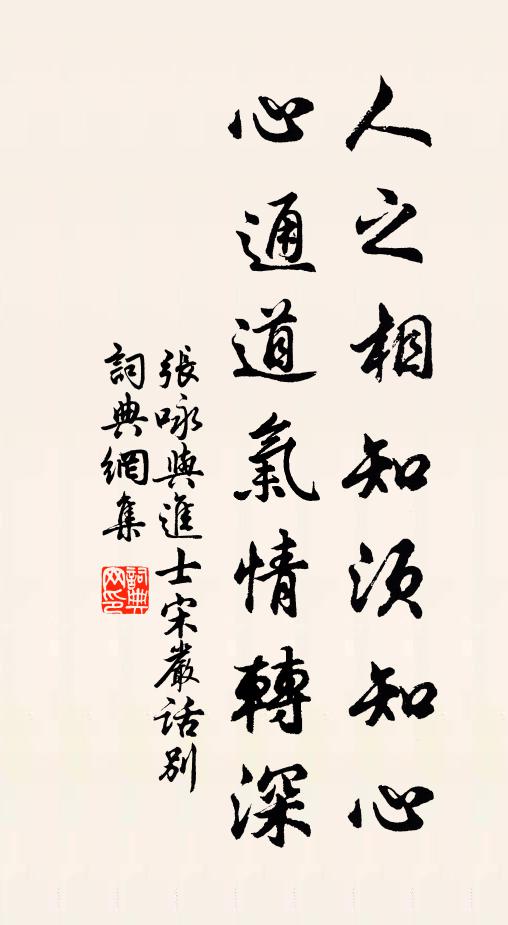 人之相知須知心
心通道氣情轉深
張咏與進士宋嚴話別
詞典網集
詞典
网印